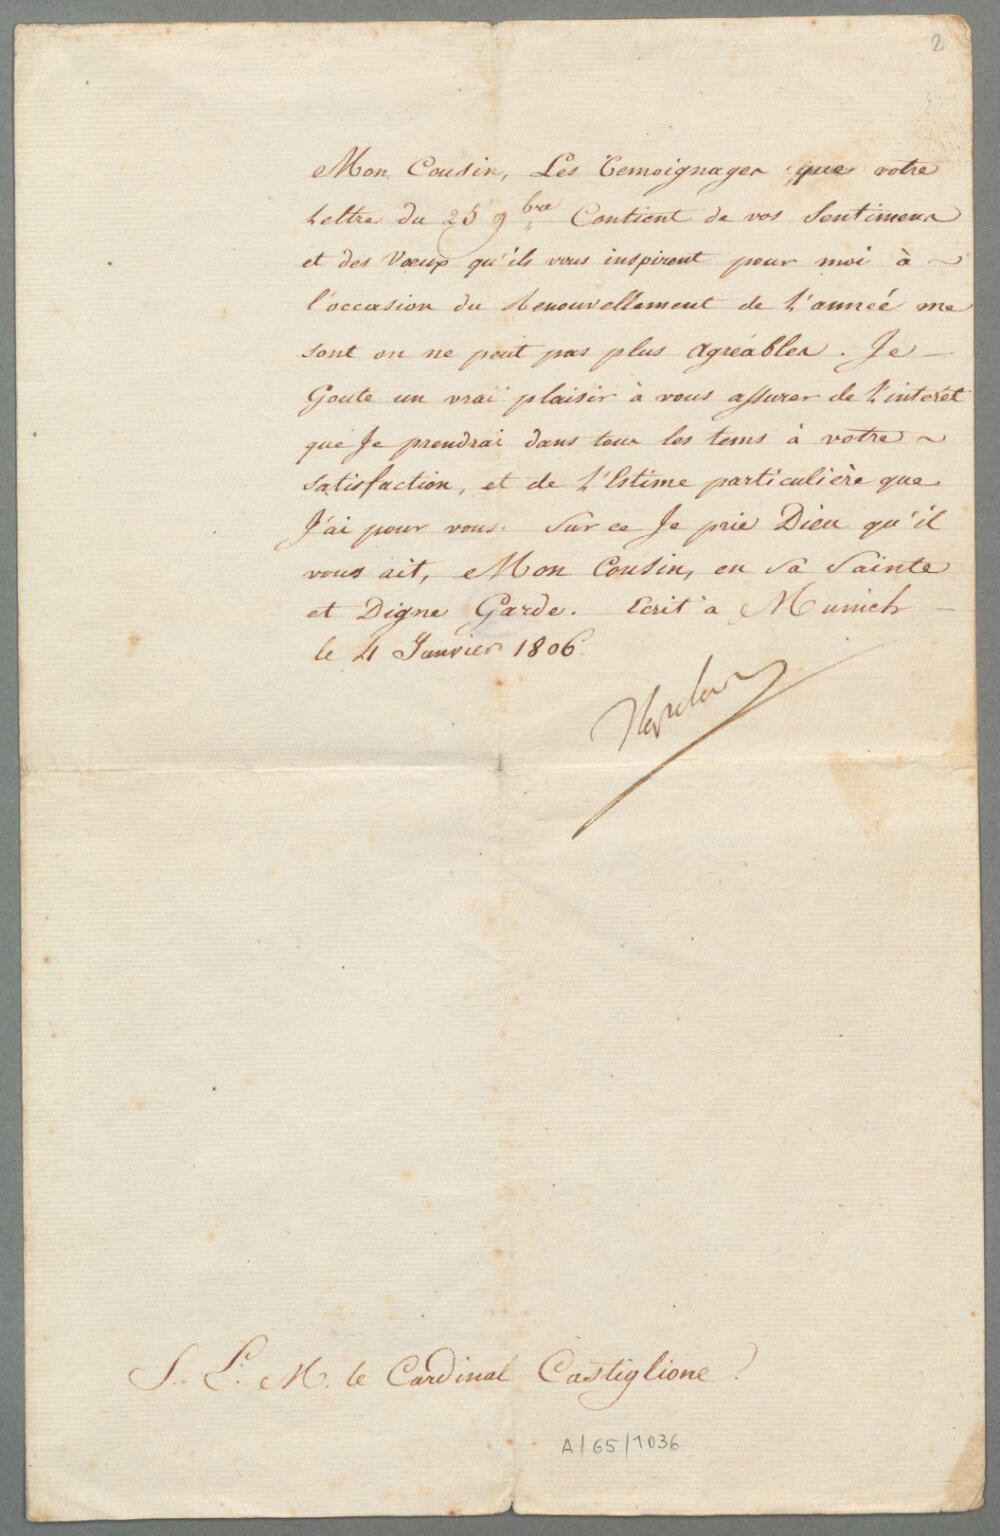 2
Mon Cousin, Les Temoignages que votre
Lettre du 25 9bre Contient de vos Sentimens
et des Vœux qu'ils vous inspirent pour moi à
l'occasion du Renouvellement de L'anneé me
sont on ne peut pas plus Agréables. Je
Goute un vrai plaisir à vous assurer de L'interêt
que Je prendrai dans tous les tems à votre
satisfaction, et de L'Estime particulière que
J'ai pour vous. Sur ce Je prie Dieu qu'il
vous ait, Mon Cousin, en Sa Sainte
et Digne Garde. Ecrit à Munich
le 4 Janvier 1806.
Napoleon
S. E. M. le Cardinal Castiglione.
A/65/1036